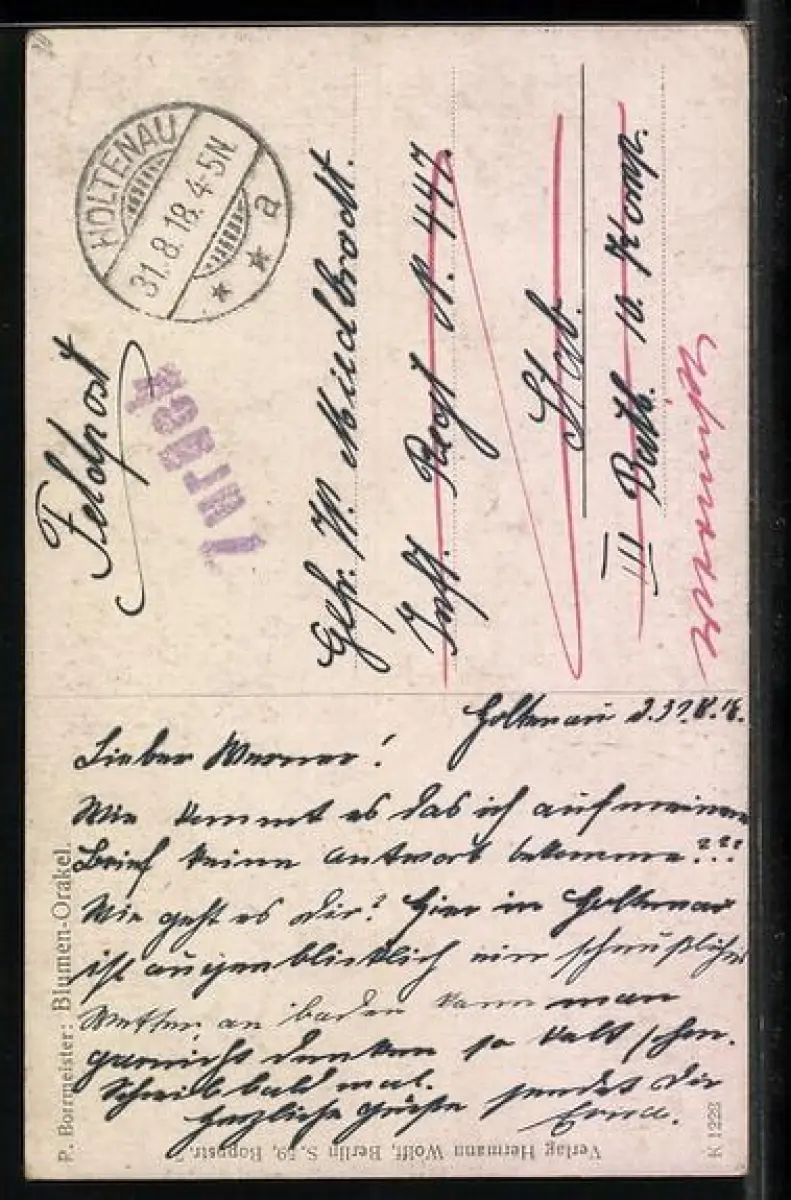 HOLTENAU
31.8.18.4-5N
a
Feldpost
Zurück
Gefr. W. Mindbrodt.
Inft. Regt N. 447.
Stab.
III Batl. 10. Komp.
Holtenau d. 31.8.18.
Lieber Werner!
Wie kommt es das ich auf meinen
Brief keine antwort bekomme???
Wie geht es Dir? Hier in Holtenau
ist augenblicklich ein scheußliches
Wetter an baden kann man
garnicht denken so kalt schon.
Schreib bald mal.
Herzliche Grüße sendet Dir
Erna.
P. Borrmeister: Blumen-Orakel.
Verlag Hermann Wolff, Berlin S. 59, Boppstr. 7
K 1223